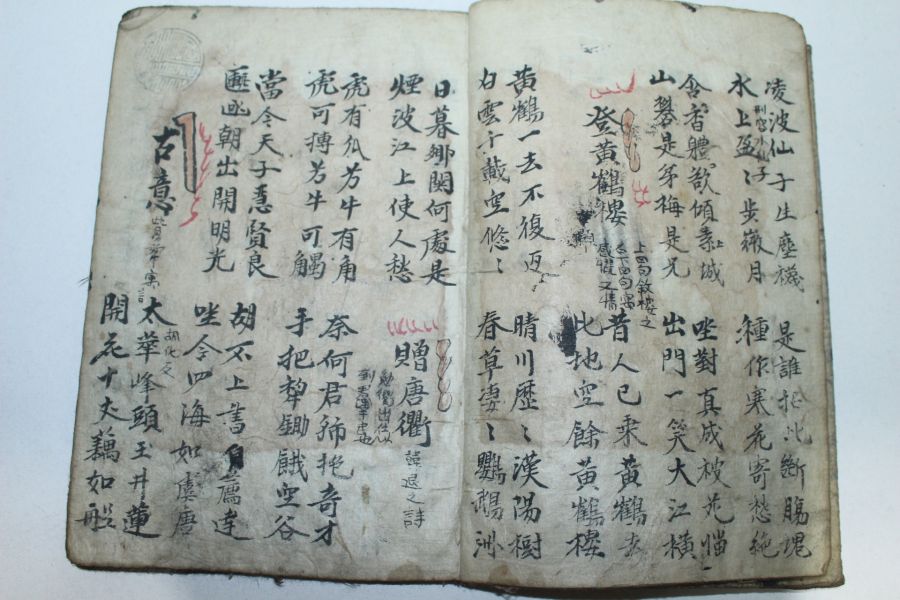 凌波仙子生塵襪
水上盈〻步微月
是誰招此斷腸魂
種作寒花寄愁絶
含香體欲傾素城
山礬是弟梅是兄
坐對真成被花惱
出門一笑大江橫
登黃鶴樓
上四句敘樓之
下四句寓
感慨之情
昔人已乘黃鶴去
此地空餘黃鶴樓
黃鶴一去不復返
白雲千載空悠〻
晴川歷〻漢陽樹
春草凄〻鸚鵡洲
日暮鄉關何處是
煙波江上使人愁
贈唐衢
韓退之詩
虎有爪兮牛有角
虎可搏兮牛可觸
奈何君獨抱奇才
手把犁鋤餓空谷
當今天子急賢良
匭函朝出開明光
胡不上書自薦達
坐令四海如虞唐
古意
太華峰頭玉井蓮
開花十丈藕如船